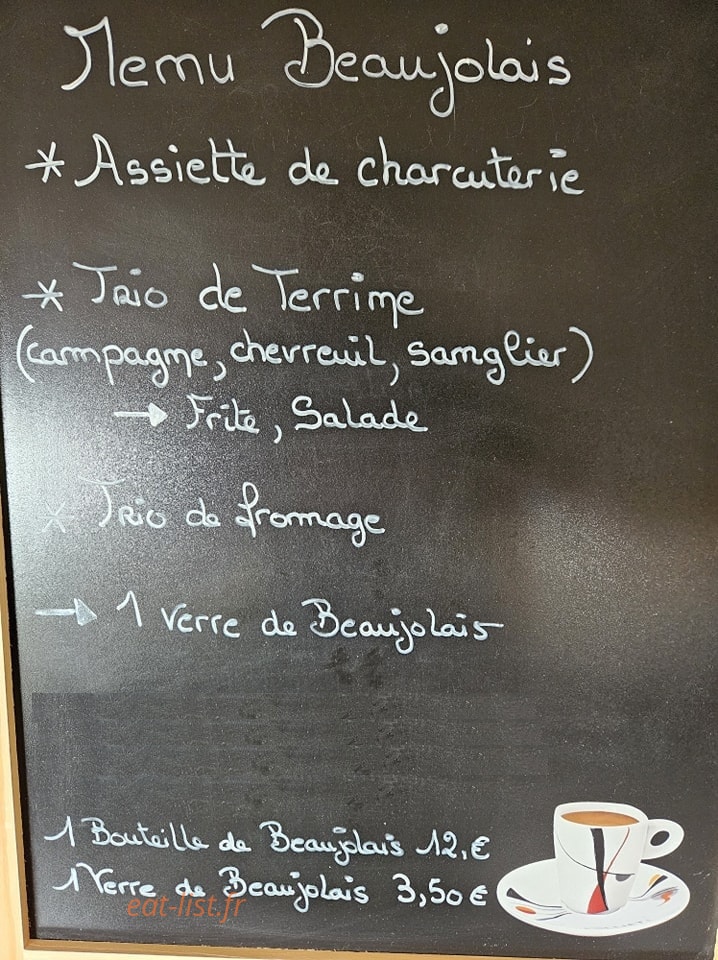 Menu Beaujolais
* Assiette de charcuterie
* Trio de Terrine
(campagne, chevreuil, sanglier)
→ Frite, Salade
* Trio de fromage
→ 1 Verre de Beaujolais
1 Bouteille de Beaujolais 12,€
1 Verre de Beaujolais 3,50€
eat-list.fr